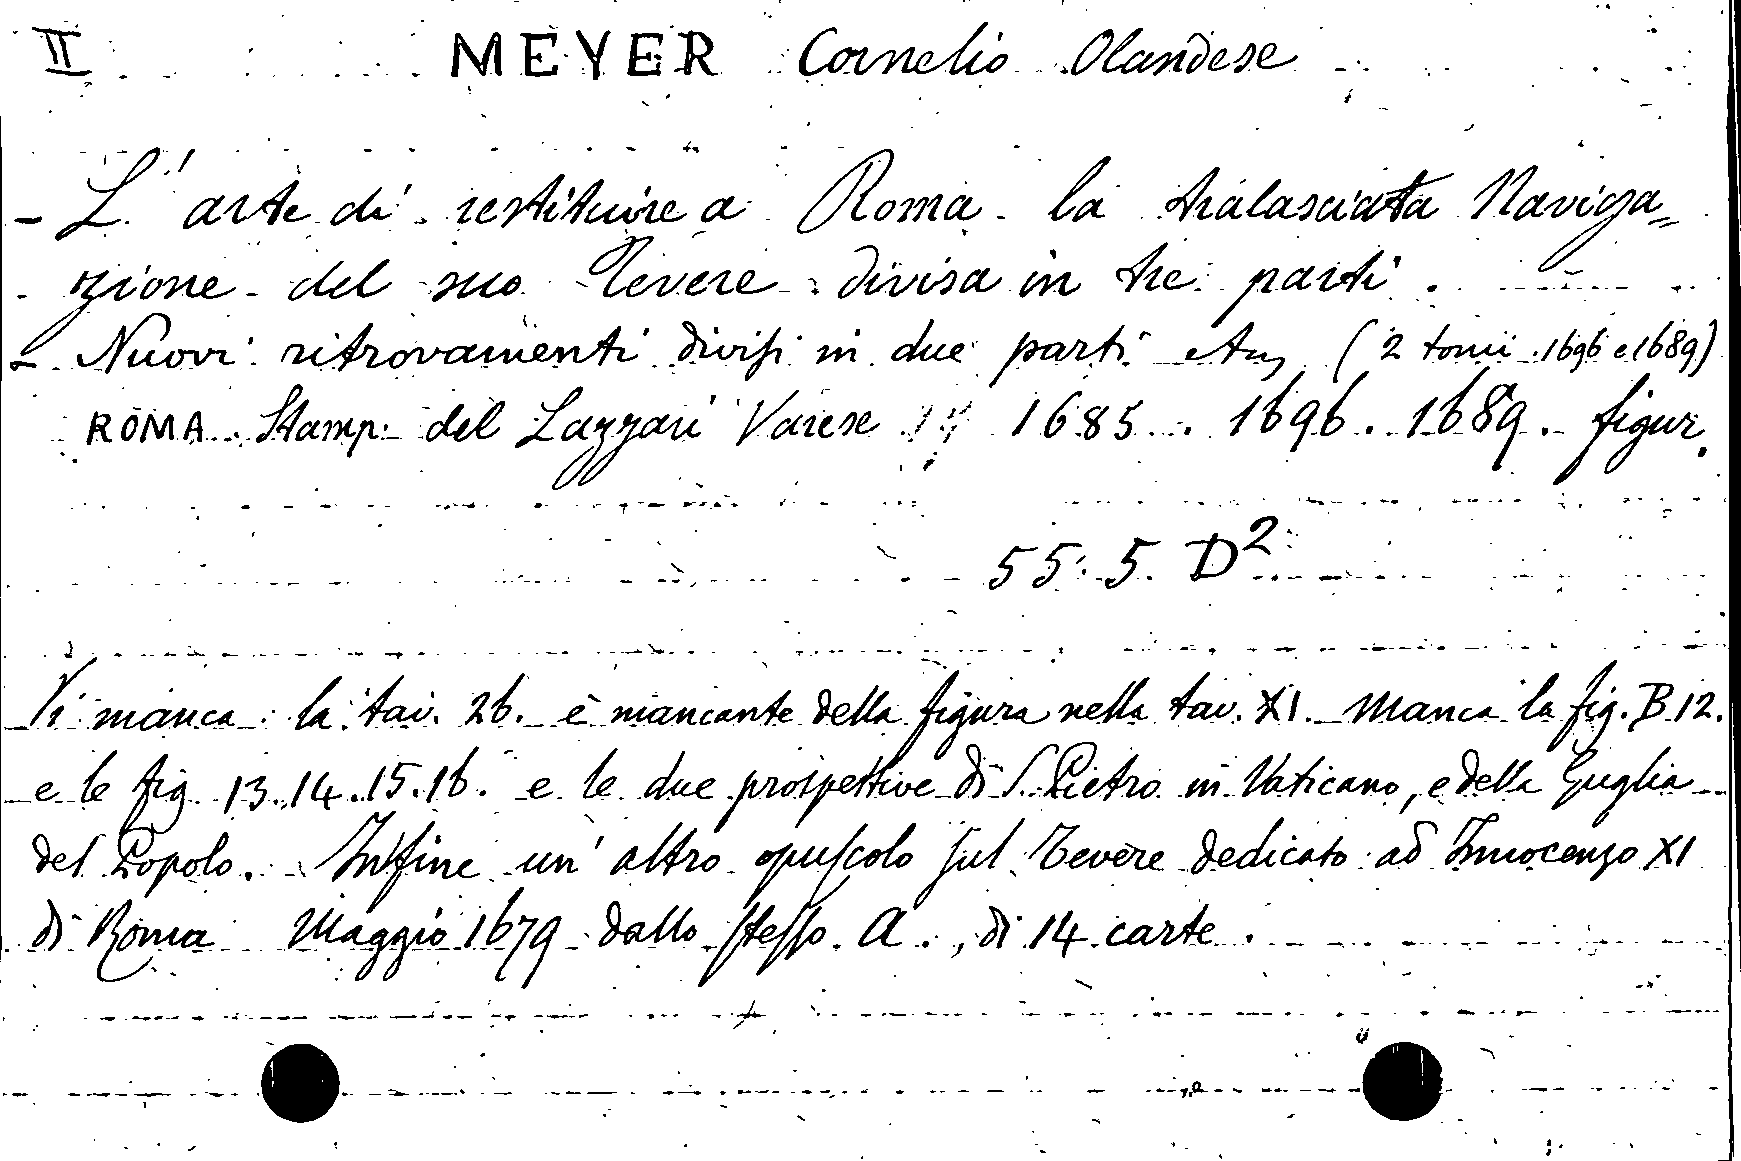 II MEYER Cornelio Olandese
- L'arte di restituire a Roma la tralasciata Naviga=
zione del suo Tevere divisa in tre parti.
- Nuovi ritrovamenti divisi in due parti (2 tomi 1696 e 1689)
ROMA. Stamp. del Lazzari Varese 1685. 1696. 1689. figur.
55. 5. D²
Vi manca la tav. 26. è mancante della figura nella tav. XI. Manca la fig. B 12.
e le fig 13.14.15.16. e le due prospettive di S. Pietro in Vaticano, e della Guglia
del Popolo. Infine un'altro opuscolo sul Tevere dedicato ad Innocenzo XI
di Roma Maggio 1679 dallo stesso A., di 14 carte.